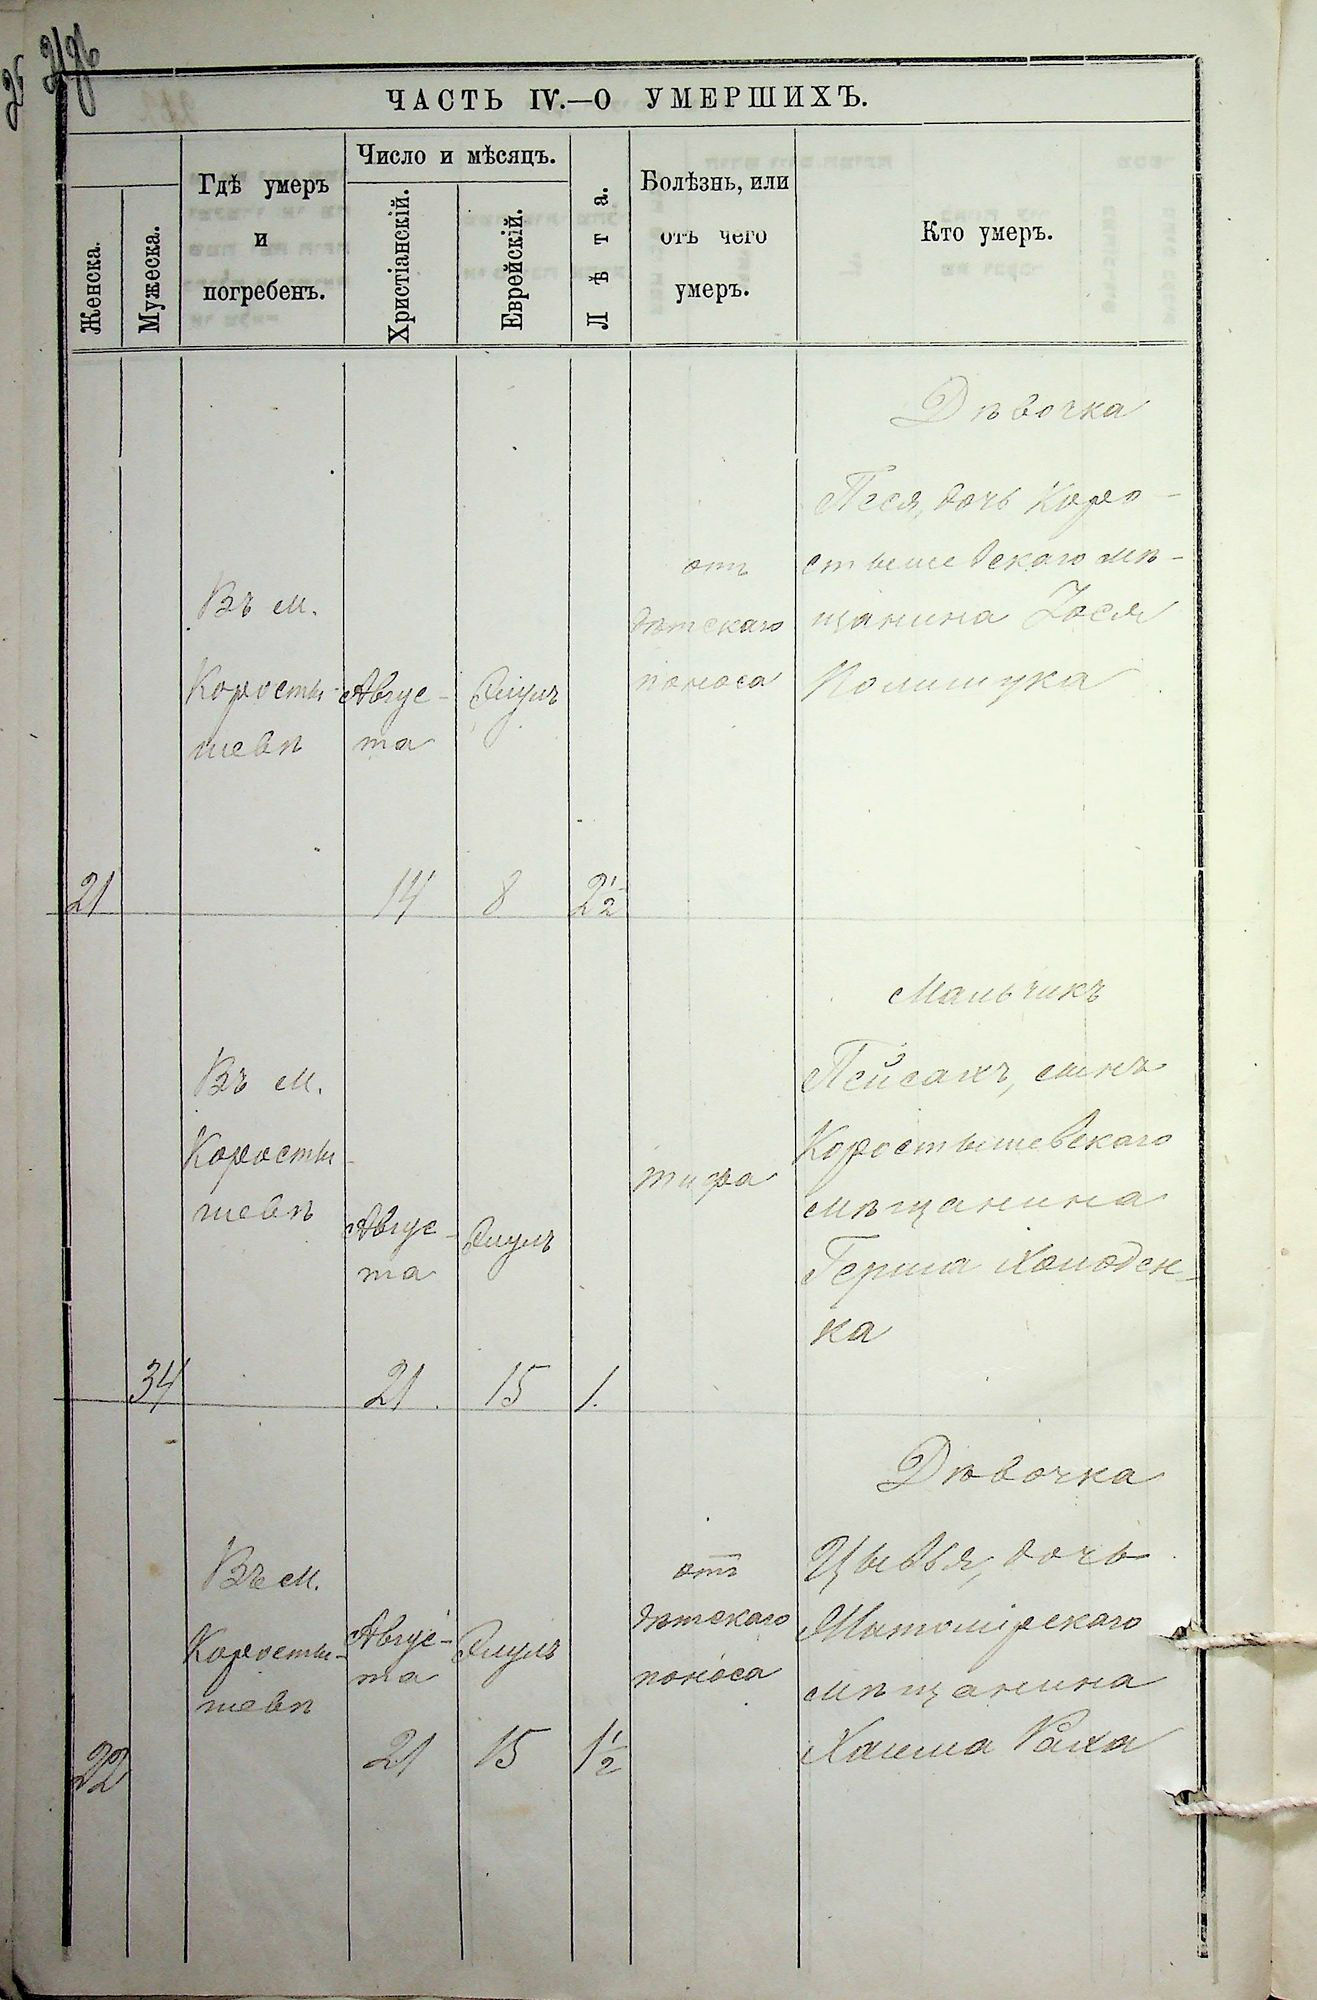 ЧАСТЬ IV.—О УМЕРШИХЪ.
Женска.
Мужеска.
Гдѣ умеръ
и
погребенъ.
Число и мѣсяцъ.
Христіанскій.
Еврейскій.
Лѣта.
Болѣзнь, или
отъ чего
умеръ.
Кто умеръ.
21
Въ м.
Коросты-
шевѣ
Авгус-
та
14
Элулъ
8
2 1/2
отъ
дѣтскаго
поноса
Дѣвочка
Песя, дочь Коро-
стышевскаго мѣ-
щанина Іося
Полищука
34
Въ м.
Коросты-
шевѣ
Авгус-
та
21
Элулъ
15
1.
тифа
Мальчикъ
Пейсахъ, сынъ
Коростышевскаго
мѣщанина
Герша Холоден-
ка
22
Въ м.
Коросты-
шевѣ
Авгус-
та
21
Элулъ
15
1 1/2
отъ
дѣтскаго
поноса
Дѣвочка
Цывья, дочь
Житомірскаго
мѣщанина
Хаима